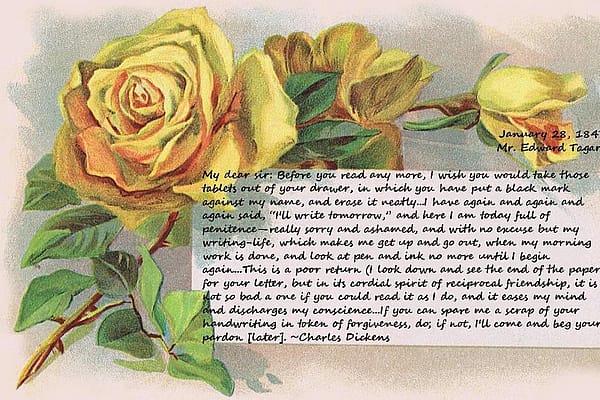 January 28, 184
Mr. Edward Tagar
My dear sir: Before you read any more, I wish you would take those
tablets out of your drawer, in which you have put a black mark
against my name, and erase it neatly...I have again and again and
again said, “I'll write tomorrow,” and here I am today full of
penitence—really sorry and ashamed, and with no excuse but my
writing-life, which makes me get up and go out, when my morning
work is done, and look at pen and ink no more until I begin
again...This is a poor return (I look down and see the end of the paper
for your letter, but in its cordial spirit of reciprocal friendship, it is
not so bad a one if you could read it as I do, and it eases my mind
and discharges my conscience...If you can spare me a scrap of your
handwriting in token of forgiveness, do; if not, I'll come and beg your
pardon [later]. ~Charles Dickens